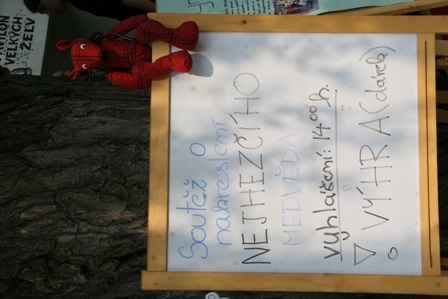 Soutěž o
nakreslení
NEJHEZČÍHO
MEDVĚDA
vyhlášení: 14⁰⁰ h.
VÝHRA (dárek)
VELKÝCH
ŽELV